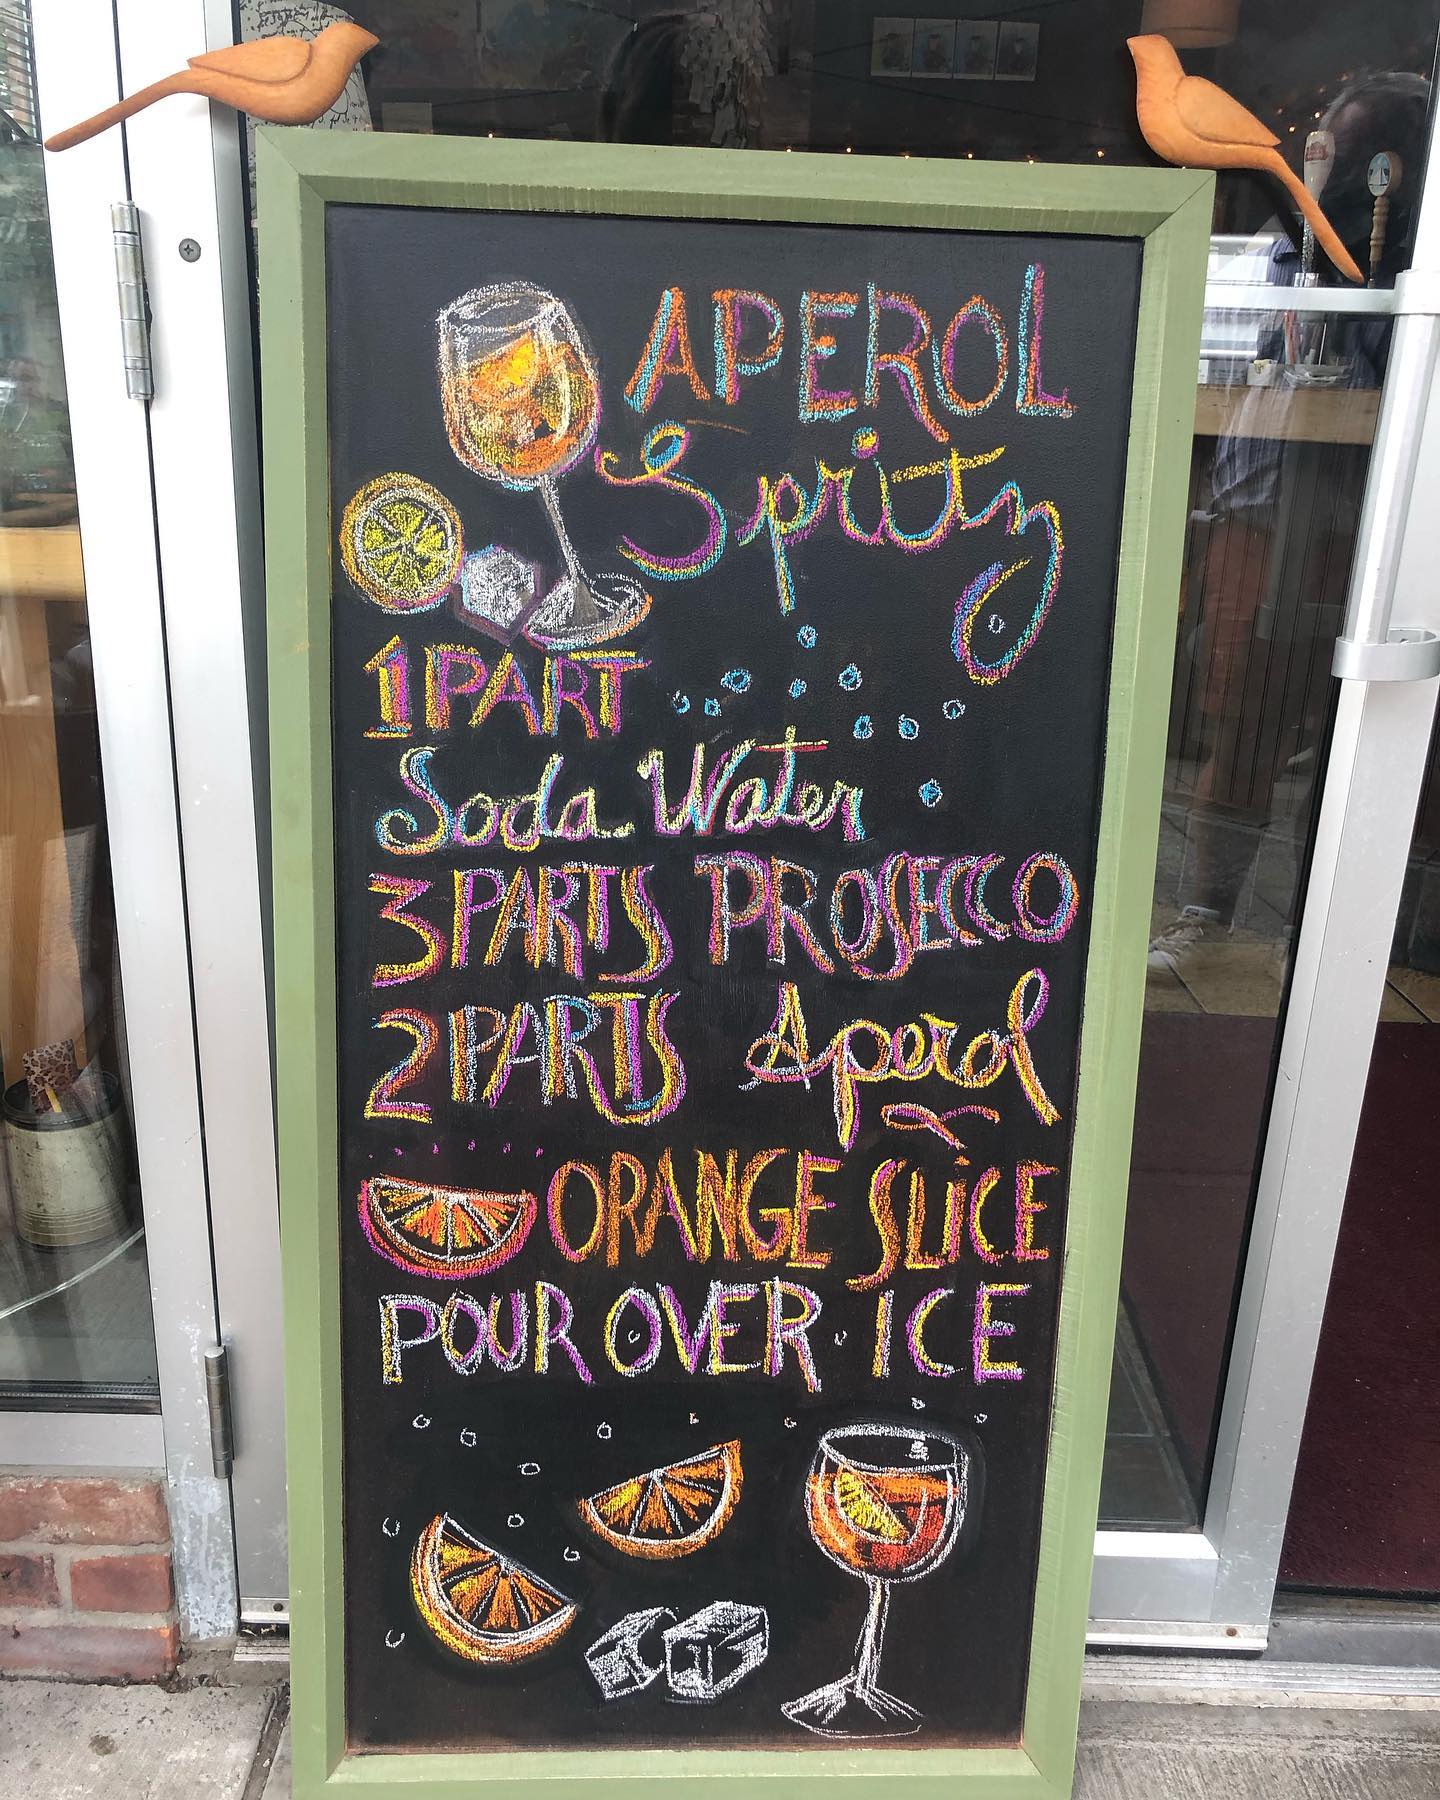 APEROL
Spritz
1 PART
Soda Water
3 PARTS PROSECCO
2 PARTS Aperol
ORANGE SLiCE
POUR OVER ICE